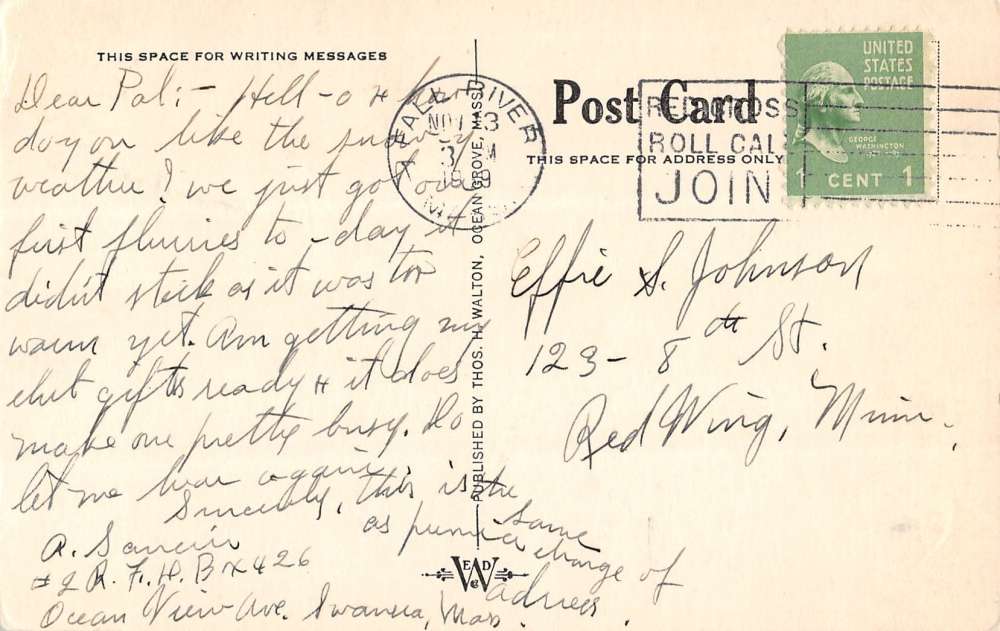 THIS SPACE FOR WRITING MESSAGES
Dear Pal:- Hell-o & how
do you like the snowy
weather! we just got our
first flurries to-day it
didn't stick as it was too
warm yet. Am getting my
club gifts ready & it does
make one pretty busy. Do
let me hear again.
Sincerely,
A.
#2 R. F. D. Bx 426
Ocean View Ave. Swansea, Mass.
this is the
same
as
a change of
address.
PUBLISHED BY THOS. H. WALTON, OCEAN GROVE, MASS.
WEAD & Co
FALL RIVER
NOV 3
MASS
Post Card
THIS SPACE FOR ADDRESS ONLY
RED CROSS
ROLL CALL
JOIN
UNITED
STATES
POSTAGE
GEORGE
WASHINGTON
1 CENT 1
Effie S. Johnson
123 - 8th St.
Red Wing, Minn.